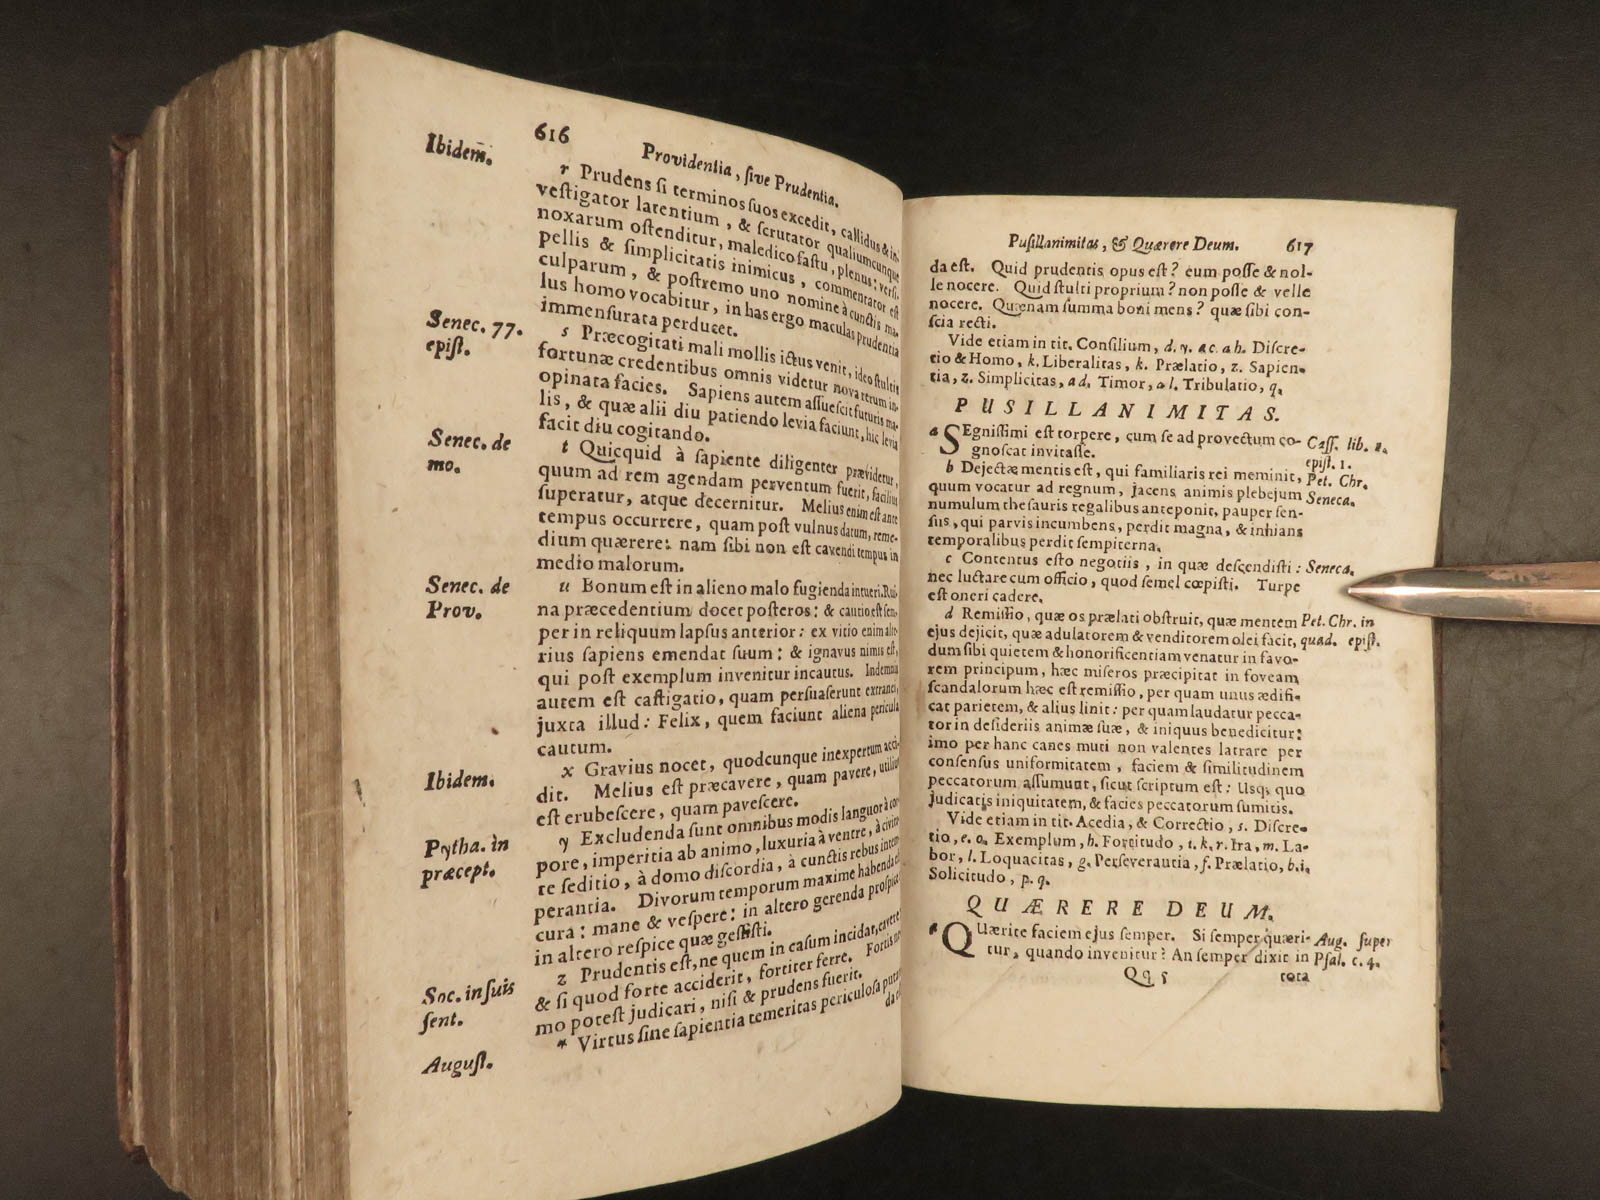 616
Providentia, ſive Prudentia.
Ibidem̃.
r Prudens ſi terminos ſuos excedit, callidus & in-
veſtigator latentium, & ſcrutator qualiumcunque
noxarum oſtenditur, maledico faſtu, plenus: verſi-
pellis & ſimplicitatis inimicus, commentator eſt
culparum, & poſtremo uno nomine à cunctis ma-
lus homo vocabitur, in has ergo maculas prudentia
immenſurata perducet.
Senec. 77.
epiſt.
s Præcogitati mali mollis ictus venit, ideo ſtultis
fortunæ credentibus omnis videtur nova rerum in-
opinata facies. Sapiens autem aſſueſcit futuris ma-
lis, & quæ alii diu patiendo levia faciunt, hic levia
facit diu cogitando.
Senec. de
mo.
t Quicquid à ſapiente diligenter prævidetur,
quum ad rem agendam perventum fuerit, facilius
ſuperatur, atque decernitur. Melius enim eſt ante
tempus occurrere, quam poſt vulnus datum, reme-
dium quærere: nam ſibi non eſt cavendi tempus in
medio malorum.
Senec. de
Prov.
u Bonum eſt in alieno malo fugienda intueri. Rui-
na præcedentium docet poſteros: & cautio eſt ſem-
per in reliquum lapſus anterior: ex vitio enim alte-
rius ſapiens emendat ſuum: & ignavus nimis eſt,
qui poſt exemplum invenitur incautus. Indemnis
autem eſt caſtigatio, quam perſuaſerunt extranei,
juxta illud: Felix, quem faciunt aliena pericula
cautum.
Ibidem.
x Gravius nocet, quodcunque inexpertum acci-
dit. Melius eſt præcavere, quam pavere, utilius
eſt erubeſcere, quam paveſcere.
Pytha. in
præcept.
y Excludenda ſunt omnibus modis languor à cor-
pore, imperitia ab animo, luxuria à ventre, à civita-
te ſeditio, à domo diſcordia, à cunctis rebus intem-
perantia. Divorum temporum maxime habenda eſt
cura: mane & veſpere: in altero gerenda proſpice
in altero reſpice quæ geſſiſti.
Soc. in ſuis
ſent.
z Prudentis eſt, ne quem in caſum incidat, cavere
& ſi quod forte acciderit, fortiter ferre. Fortis ne-
mo poteſt judicari, niſi & prudens fuerit.
Auguſt.
* Virtus ſine ſapientia temeritas periculoſa putan-
da e
Puſillanimitas, & Quærere Deum. 617
da eſt. Quid prudentis opus eſt? eum poſſe & nol-
le nocere. Quid ſtulti proprium? non poſſe & velle
nocere. Quænam ſumma boni mens? quæ ſibi con-
ſcia recti.
Vide etiam in tit. Conſilium, d. y. ac. ah. Diſcre-
tio & Homo, k. Liberalitas, k. Prælatio, z. Sapien-
tia, z. Simplicitas, ad. Timor, al. Tribulatio, q.
PUSILLANIMITAS.
a SEgniſſimi eſt torpere, cum ſe ad provectum co-
gnoſcat invitaſſe.
Caſſ. lib. 2.
epiſt. 1.
b Dejectæ mentis eſt, qui familiaris rei meminit,
quum vocatur ad regnum, jacens animis plebejum
numulum theſauris regalibus anteponit, pauper ſen-
ſus, qui parvis incumbens, perdit magna, & inhians
temporalibus perdit ſempiterna.
Pet. Chr.
Seneca.
c Contentus eſto negotiis, in quæ deſcendiſti:
nec luctare cum officio, quod ſemel cœpiſti. Turpe
eſt oneri cadere.
Seneca.
d Remiſſio, quæ os prælati obſtruit, quæ mentem
ejus dejicit, quæ adulatorem & venditorem olei facit,
dum ſibi quietem & honorificentiam venatur in favo-
rem principum, hæc miſeros præcipitat in foveam
ſcandalorum hæc eſt remiſſio, per quam unus ædifi-
cat parietem, & alius linit: per quam laudatur pecca-
tor in deſideriis animæ ſuæ, & iniquus benedicitur:
imo per hanc canes muti non valentes latrare per
conſenſus uniformitatem, faciem & ſimilitudinem
peccatorum aſſumunt, ſicut ſcriptum eſt: Uſq; quo
judicatis iniquitatem, & facies peccatorum ſumitis.
Pet. Chr. in
quad. epiſt.
Vide etiam in tit. Acedia, & Correctio, s. Diſcre-
tio, e. o. Exemplum, h. Fortitudo, t. k. r. Ira, m. La-
bor, l. Loquacitas, g. Perſeverantia, f. Prælatio, b. i.
Solicitudo, p. q.
QUÆRERE DEUM.
a QUærite faciem ejus ſemper. Si ſemper quæri-
tur, quando invenitur? An ſemper dixit in
Aug. ſuper
Pſal. c. 4.
Qq 5 tota